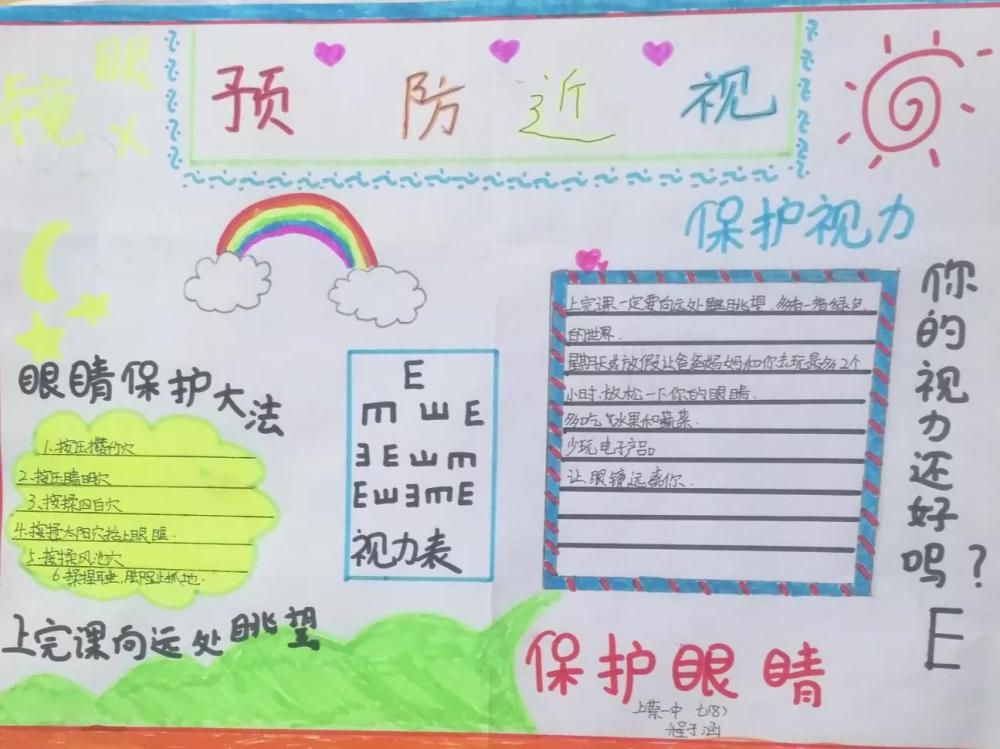 预防近视
眼
镜 ×
保护视力
上完课一定要向远处眺望.多看一看绿色
的世界.
星期天或放假让爸爸妈妈和你去玩最多2个
小时.放松一下你的眼睛.
多吃水果和蔬菜.
少玩电子产品。
让眼镜远离你.
你的视力还好吗？
E
眼睛保护大法
1.按压攒竹穴
2.按压睛明穴
3.按揉四白穴
4.按揉太阳穴
5.按揉风池穴
6.揉捏耳垂,脚趾抓地.
E
E E E
E E E E
E E E E E
视力表
上完课向远处眺望
保护眼睛
上蔡一中 七(8)
程子涵